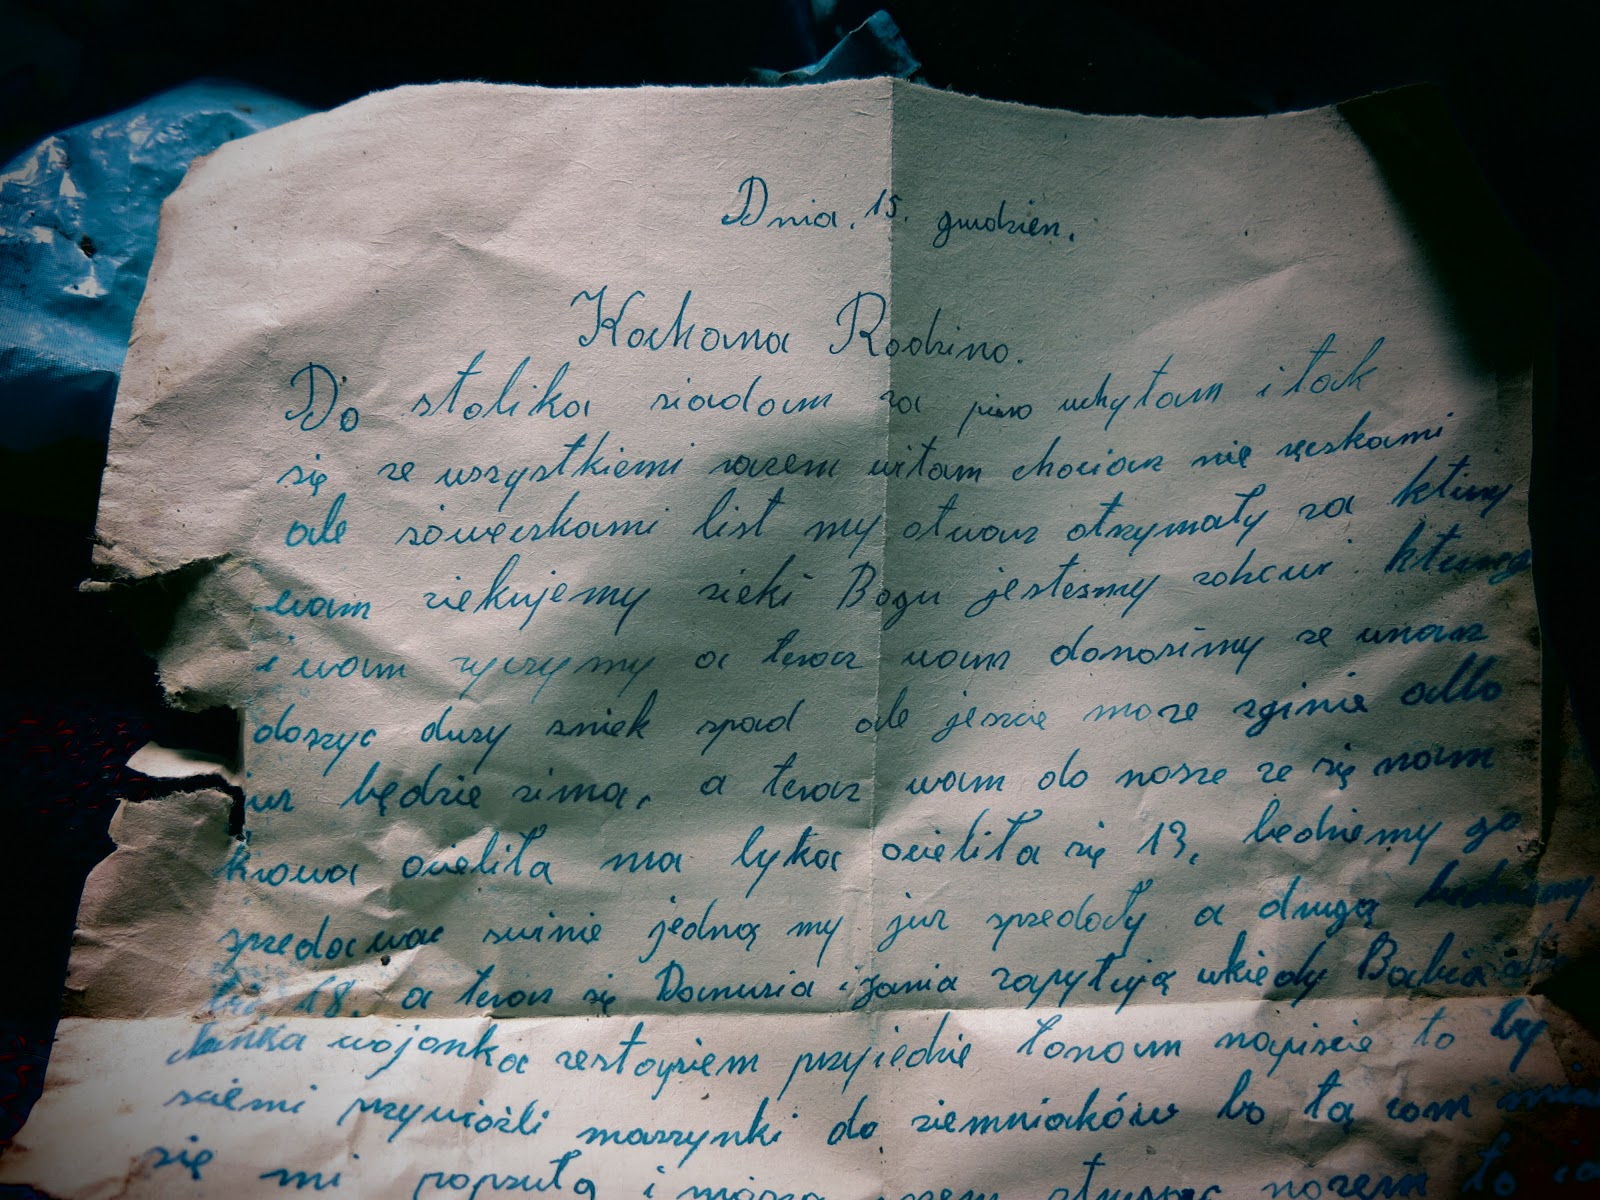 Dnia. 15. grudzien.
Kochana Rodzino.
Do stolika siadam za pioro uchytam i tak
się ze wszystkiemi razem witam chociarz nie ręczkami
ale sóweczkami list my otwarz otrzymały za ktury
wam ziekujemy zieki Bogu jestesmy zdrowi kturego
i wam zyczymy a teraz wam donosimy ze unasz
doszyc duzy sniek spad ale jeszcie moze zginie albo
jur będzie zima, a teraz wam do nosze ze się nam
krowa ocieliła ma byka ocieliła się 13, bedziemy go
spredawac swinie jedną my jur spredały a drugą bedziemy
18. a teraz się Danusia i Jania zapytują wkiedy Babcia
wojanka zestasiem przyiedzie tonam napiscie to by
sciemi przywiozli maszynki do ziemniaków bo tą com
się mi popsuła i muszę nozem to